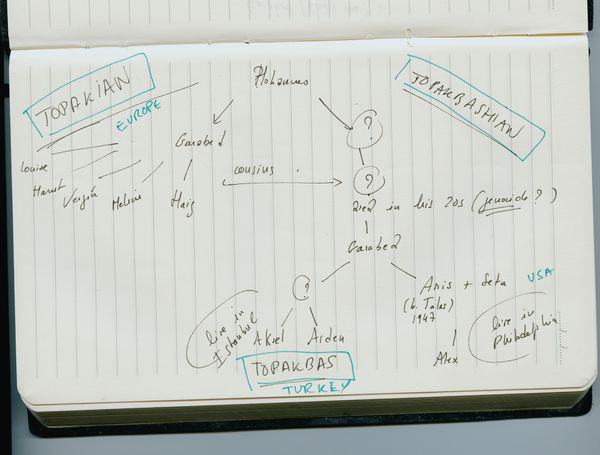 TOPAKIAN
EUROPE
Hohannes
TOPAKBASHIAN
?
Garabed
Louise
Verjin
Meline
Haig
cousins
?
died in his 20s (genocide?)
Garabed
?
Anis + Seta
USA
(b. Talas)
1947
live in
Istanbul
Aksel
Arden
live in
Philadelphia
Alex
TOPAKBAS
TURKEY